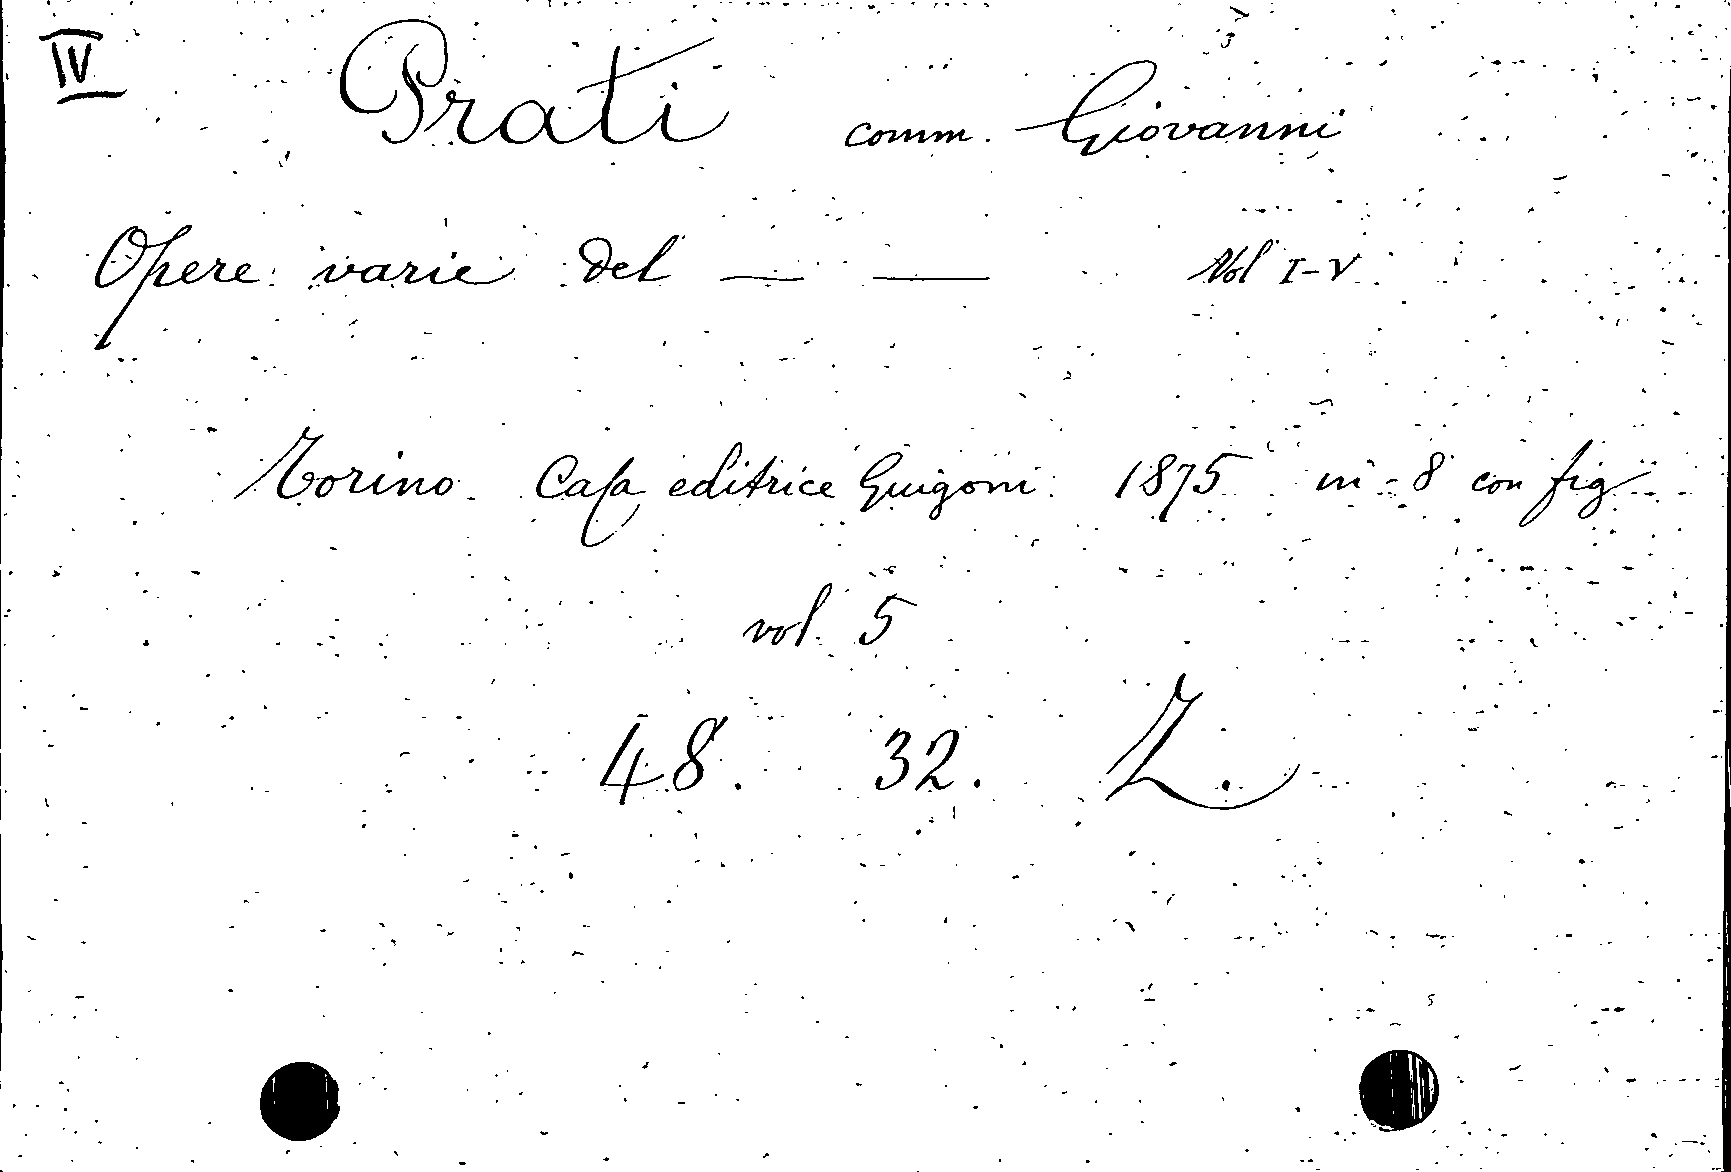 IV Prati comm. Giovanni
Opere varie del — — Vol I-V
Torino. Casa editrice Guigoni. 1875 in-8 con fig
vol. 5
48. 32. Z.